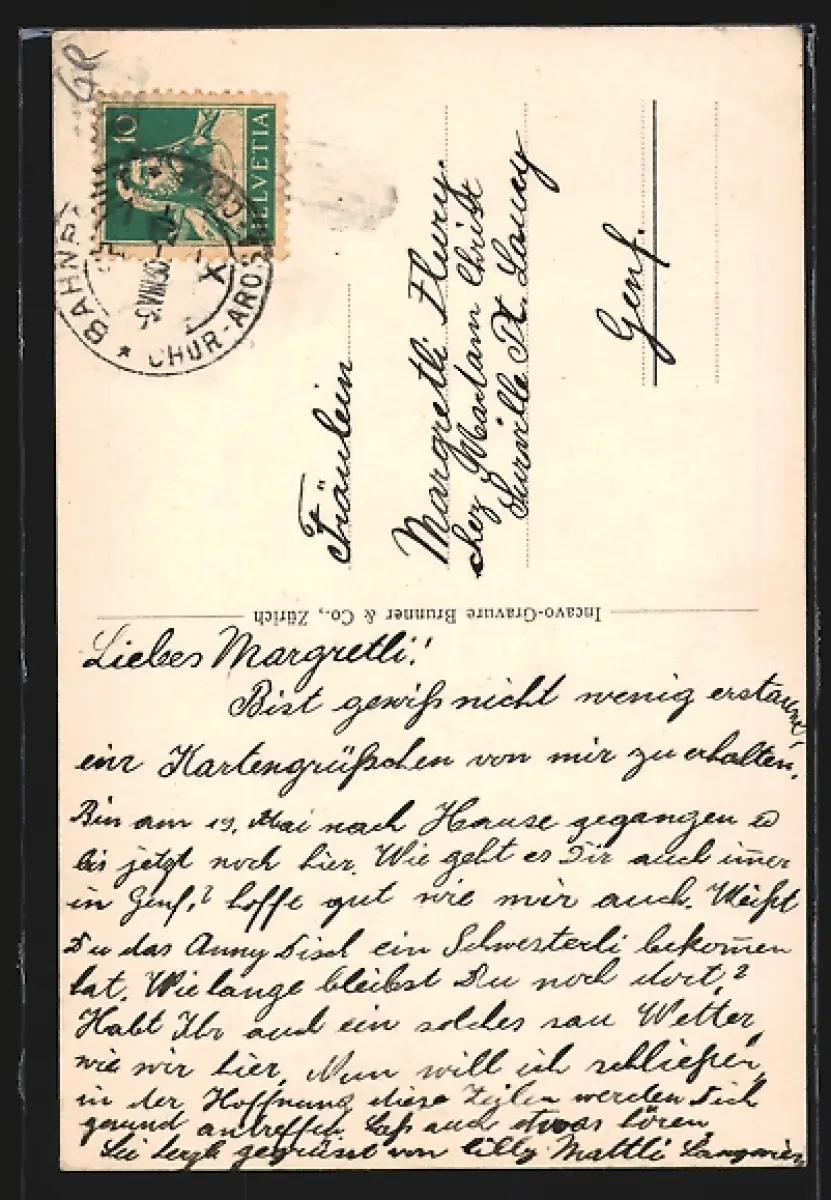 GR
10
HELVETIA
BAHNP
CHUR-AROSA
X
Fräulein
Margretli Flury.
chez Madam Christ
Surville Pt. Lancy
Genf.
Incavo-Gravure Brunner & Co., Zürich
Liebes Margretli!
Bist gewiß nicht wenig erstaunt
ein Kartengrüßchen von mir zu erhalten.
Bin am 19. Mai nach Hause gegangen &
bis jetzt noch hier. Wie geht es Dir auch im̅er
in Genf,? hoffe gut wie mir auch. Weißt
Du das Anny Disch ein Schwesterli bekom̅en
hat. Wie lange bleibst Du noch dort,?
Habt Ihr auch ein solches sau Wetter,
wie wir hier, Nun will ich schließen,
in der Hoffnung diese Zeilen werden Dich
gesund antreffen Laß auch etwas hören.
Sei herzl. gegrüsst von Lilly Mattli Langwies